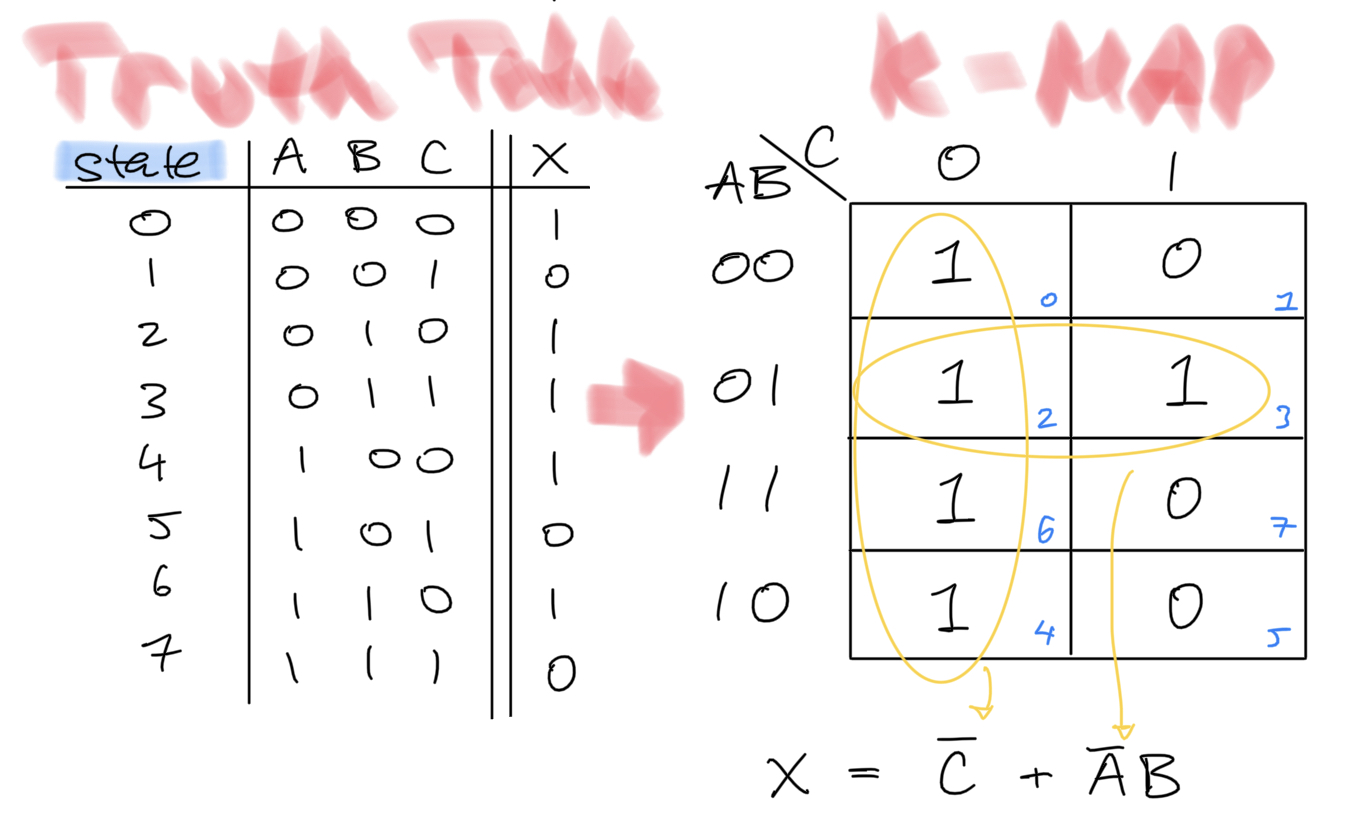 Truth Table
state A B C X
0 0 0 0 1
1 0 0 1 0
2 0 1 0 1
3 0 1 1 1
4 1 0 0 1
5 1 0 1 0
6 1 1 0 1
7 1 1 1 0
K-MAP
AB C 0 1
00 1 0 0 1
01 1 2 1 3
11 1 6 0 7
10 1 4 0 5
X = C̅ + A̅B